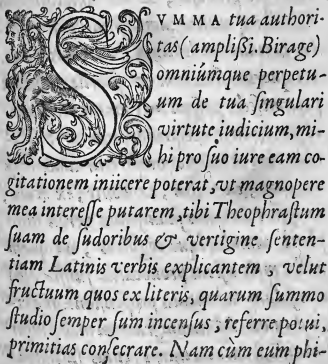 SVMMA tua authori-
tas (amplißi. Birage)
omniúmque perpetu-
um de tua ſingulari
virtute iudicium, mi-
hi pro ſuo iure eam co-
gitationem iniicere poterat, vt magnopere
mea intereſſe putarem, tibi Theophraſtum
ſuam de ſudoribus & vertigine ſenten-
tiam Latinis verbis explicantem, velut
fructuum quos ex literis, quarum ſummo
ſtudio ſemper ſum incenſus, referre potui,
primitias conſecrare. Nam cùm eum phi-